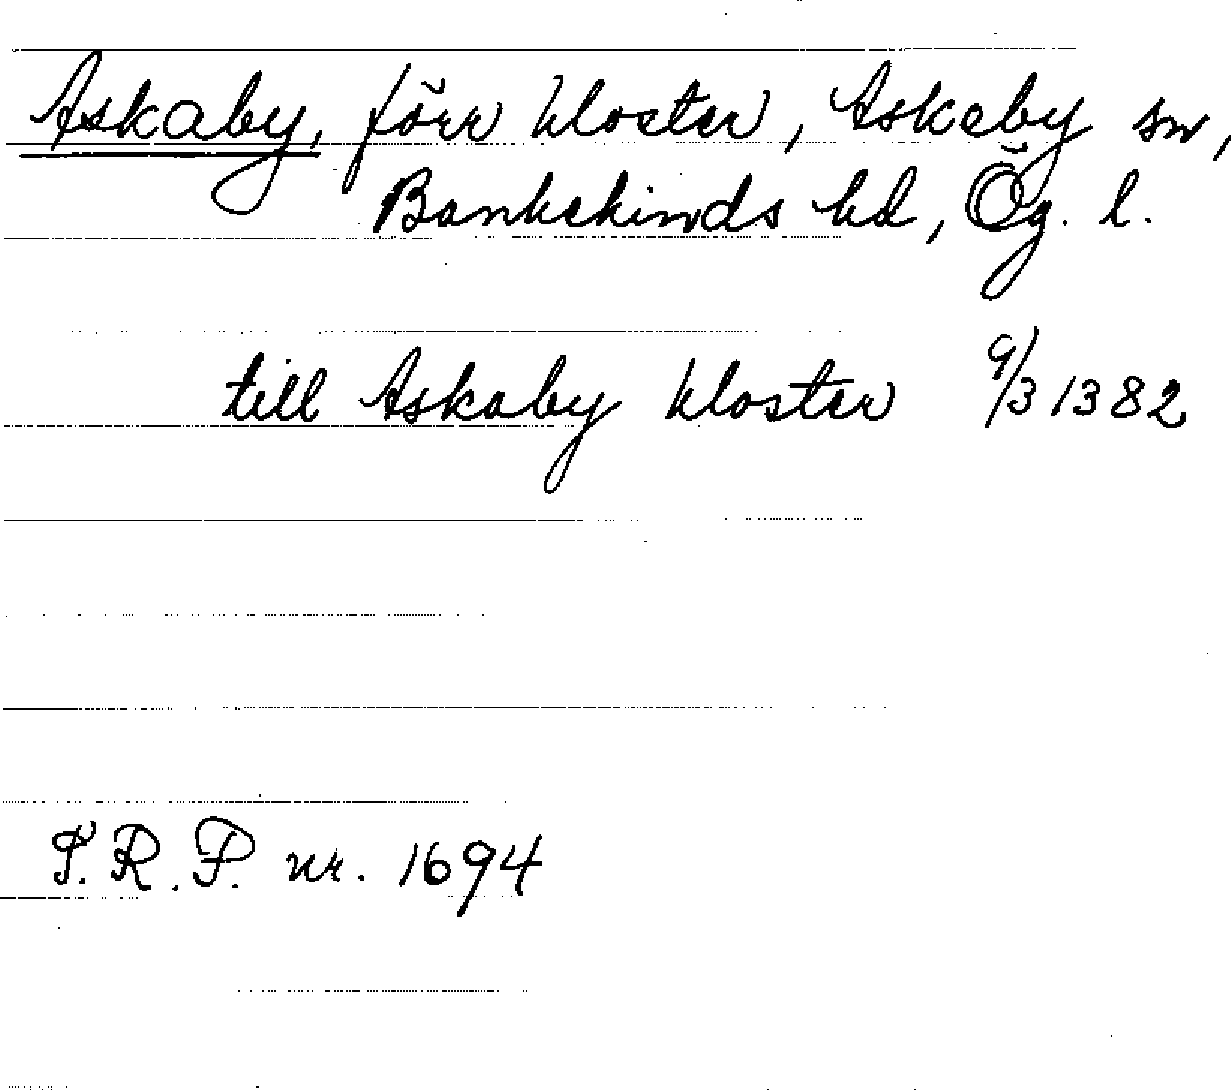 Askaby, förr kloster, Askeby sn,
Bankekinds hd, Ög. l.
till Askaby kloster 9/3 1382
S.R.P. nr. 1694